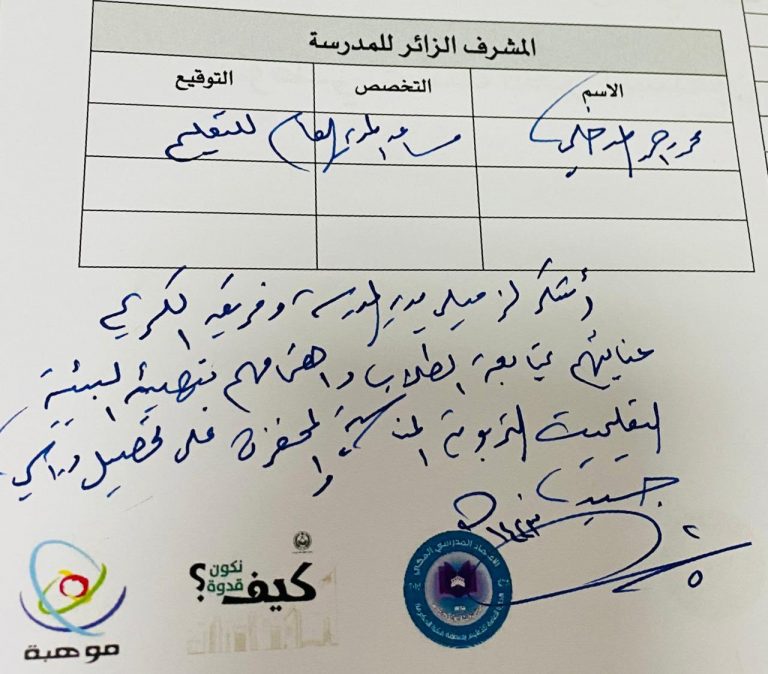 المشرف الزائر للمدرسة
الاسم التخصص التوقيع
مساعد المدير العام للتعليم
أشكر زميلي مدير المدرسة وفريقه الكريم
عنايتهم بمتابعة الطلاب واهتمامهم بتهيئة البيئة
التعليمية التربوية المناسبة والمحفزة على تحصيل دراسي
١٤٤٣
نكون
كيف قدوة؟
موهبة